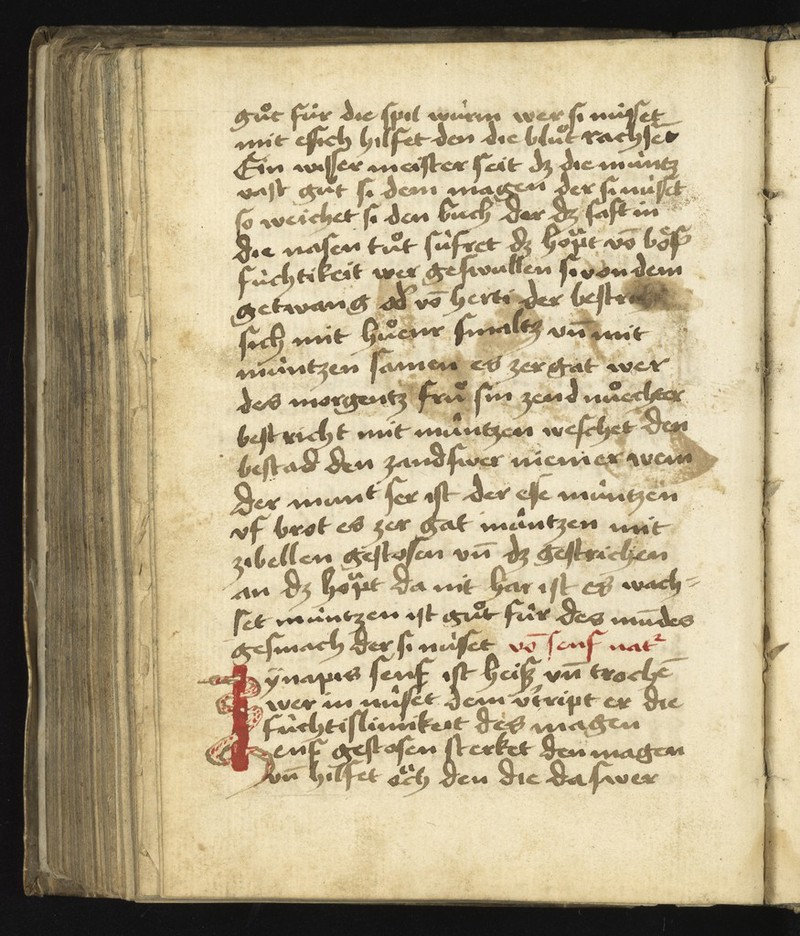 guͦt für die spil würm wer si nüsset
mit essich hilfet den die bluͦt rachset
Ein wisser meister seit dz die müntz
vast guͦt si dem magen der si nüset
so weichet si den buch der dz saft in
die nasen tuͦt sufret dz hoͮpt vō böß
füchtikeit wer geswullen si von dem
getwang od vō herti der bestrich
sich mit huͤenr smaltz vn̄ mit
müntzen samen es zergat wer
des morgentz fruͦ sin zend nuͤechter
bestricht mit müntzen weschet den
bestad den zandswer niemer wem
der munt ser ist der ese müntzen
vf brot es zer gat müntzen mit
zibellen gestosen vn̄ dz gestrichen
an dz hoͮpt da nit har ist es wach=
set müntzen ist guͦt für des mūdes
gesmach der si nüset vō senf nat
Synapis senf ist heiß vn̄ trochē
wer in nüset dem v'tript er die
füchtislimikeit des magen
Senf gestosen sterket den magen
vn̄ hilfet oͮch den die da swer